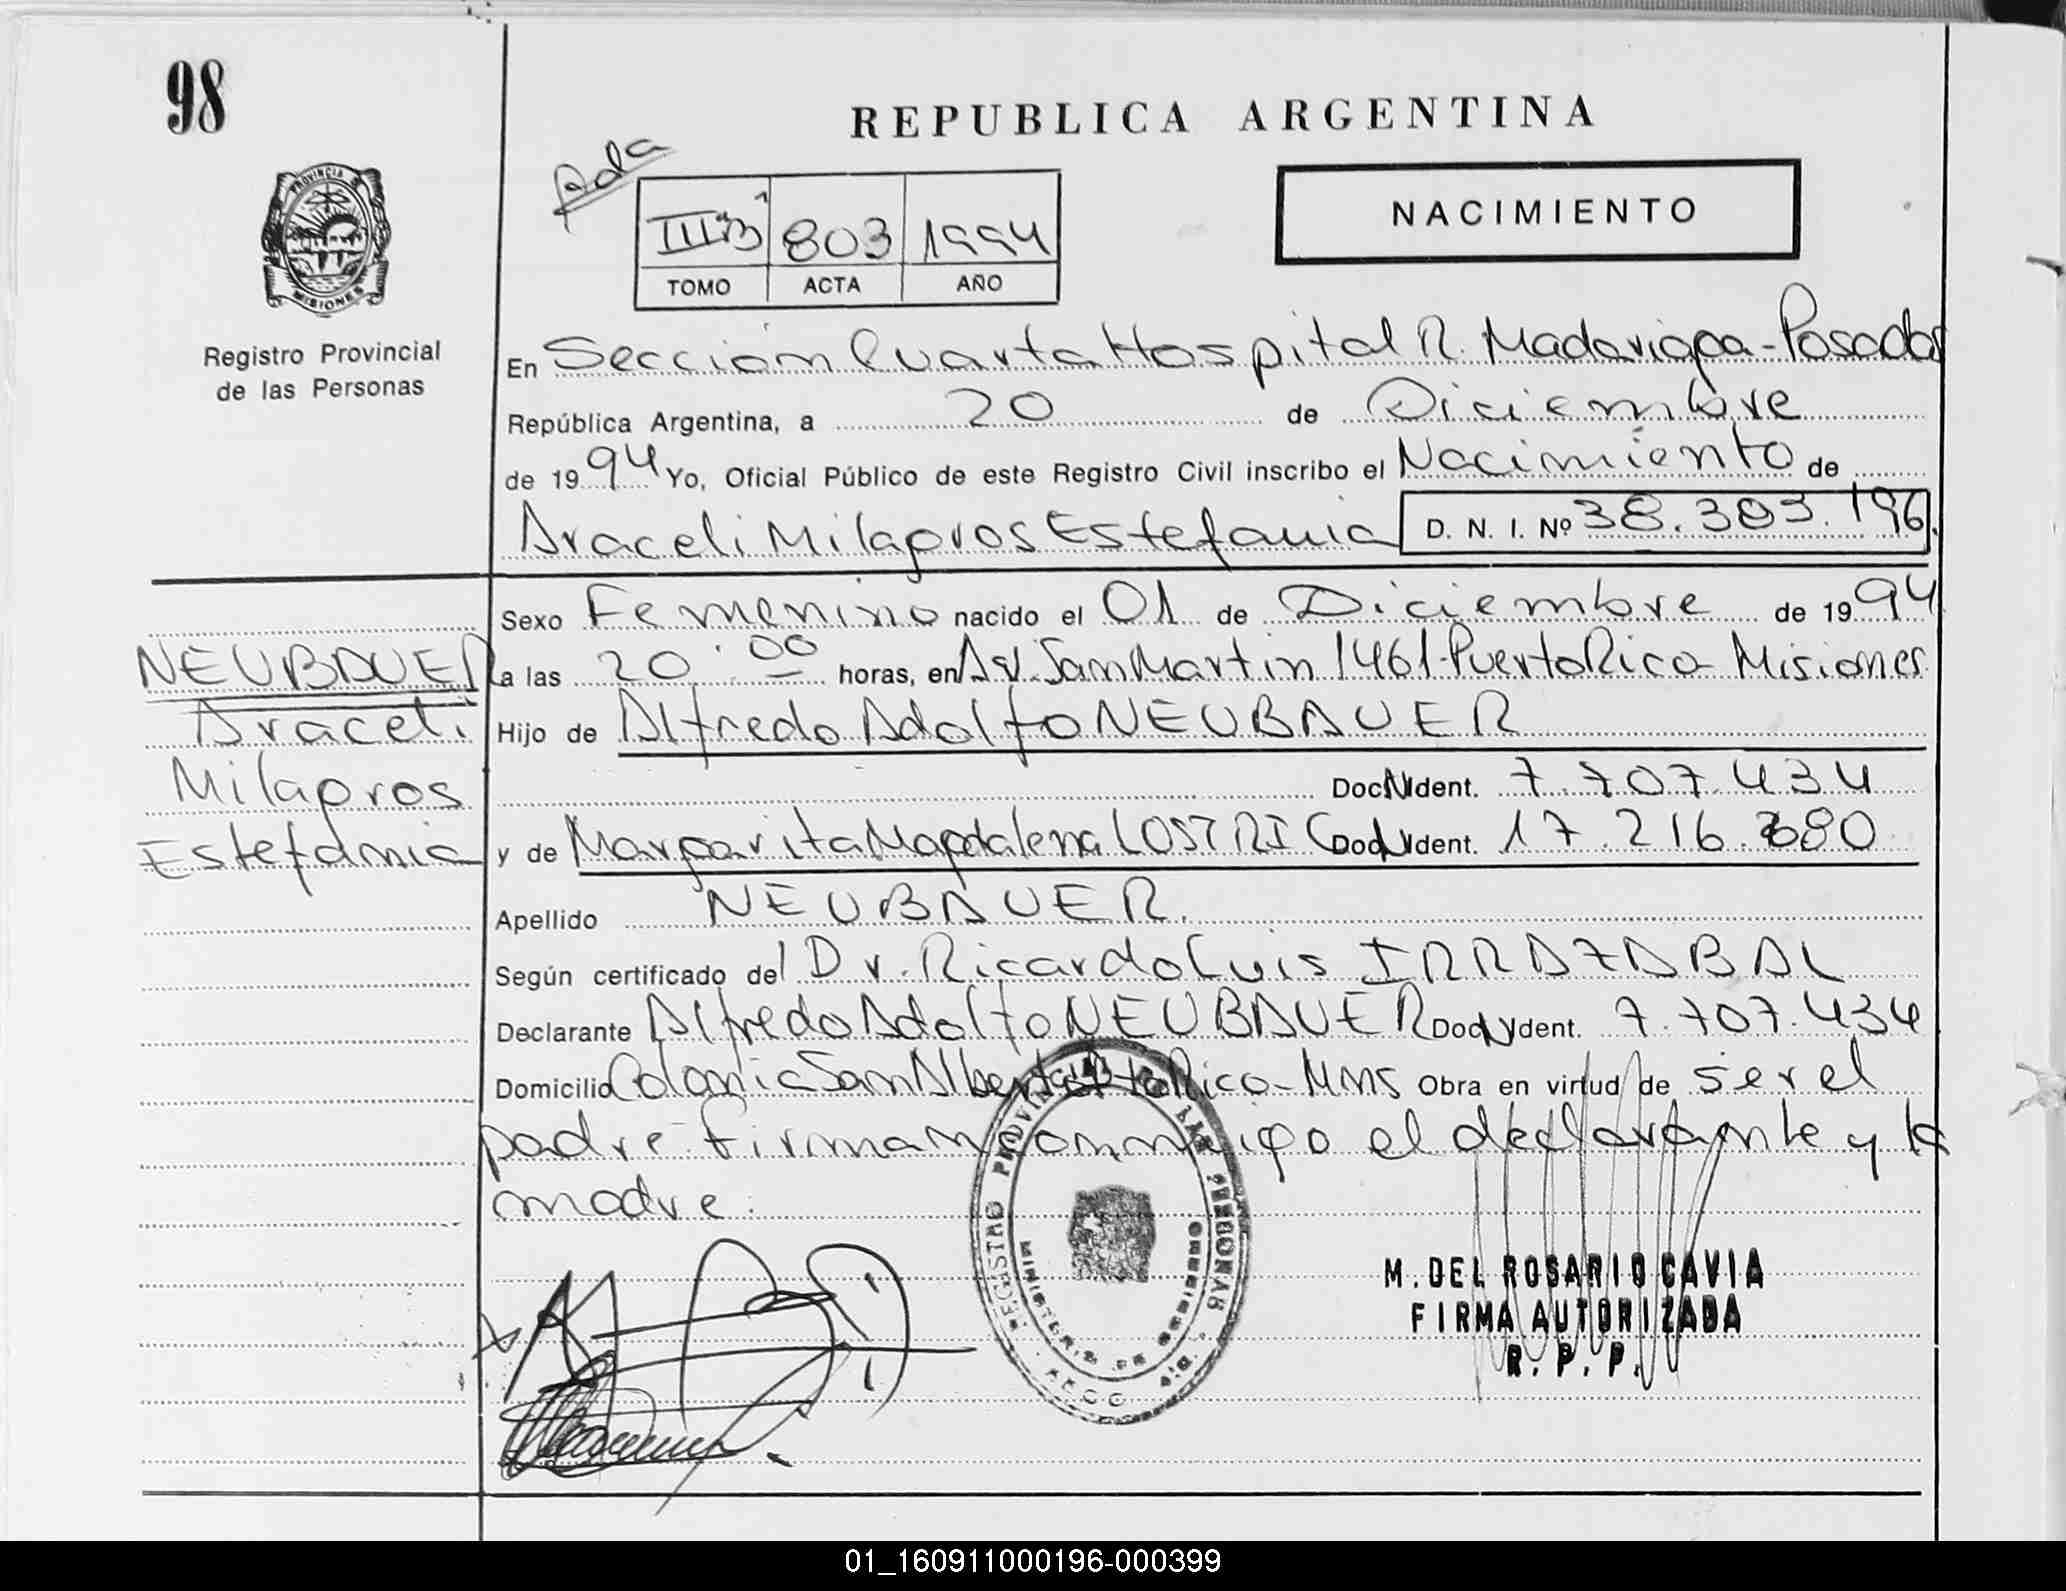 98
REPUBLICA ARGENTINA
Ada
NACIMIENTO
III"B" 803 1994
TOMO ACTA AÑO
PROVINCIA DE
MISIONES
Registro Provincial
de las Personas
En Sección Cuarta Hospital R. Madariaga - Posadas
República Argentina, a 20 de Diciembre
de 1994 Yo, Oficial Público de este Registro Civil inscribo el Nacimiento de
Araceli Milagros Estefania D. N. I. Nº 38.383.196.
Sexo Femenino nacido el 01 de Diciembre de 1994
NEUBAUER
a las 20:00 horas, en Av. San Martin 1461-Puerto Rico- Misiones.
Araceli
Hijo de Alfredo Adolfo NEUBAUER
Milagros
Doc. Ident. 7.707.434
Estefania
y de Margarita Magdalena LOSTRI Doc. Ident. 17.216.680
Apellido NEUBAUER.
Según certificado del Dr. Ricardo Luis IRRAZABAL
Declarante Alfredo Adolfo NEUBAUER Doc. Ident. 7.707.434
Domicilio Colonia San Alberto Pto Rico- Mnes Obra en virtud de ser el
padre. Firman conmigo el declarante y la
madre.
REGISTRO PROVINCIAL DE LAS PERSONAS
MINISTERIO DE GOBIERNO
M. DEL ROSARIO CAVIA
FIRMA AUTORIZADA
R. P. P.
01_160911000196-000399